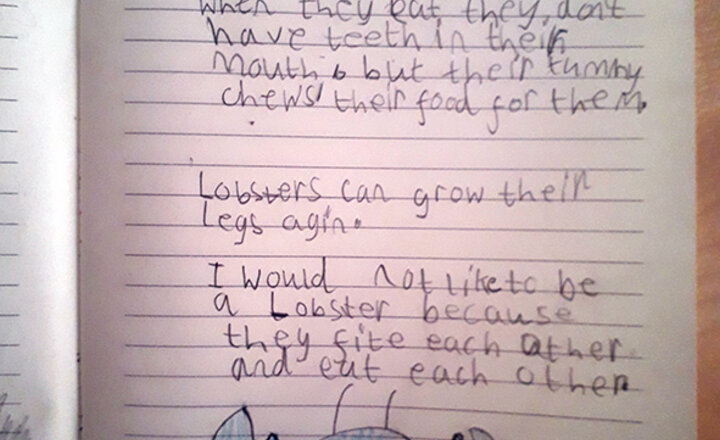 When they eat they don't
have teeth in their
mouth but their tummy
chews their food for them.
Lobsters can grow their
Legs agin.
I would not like to be
a Lobster because
they fite each ather
and eat each other